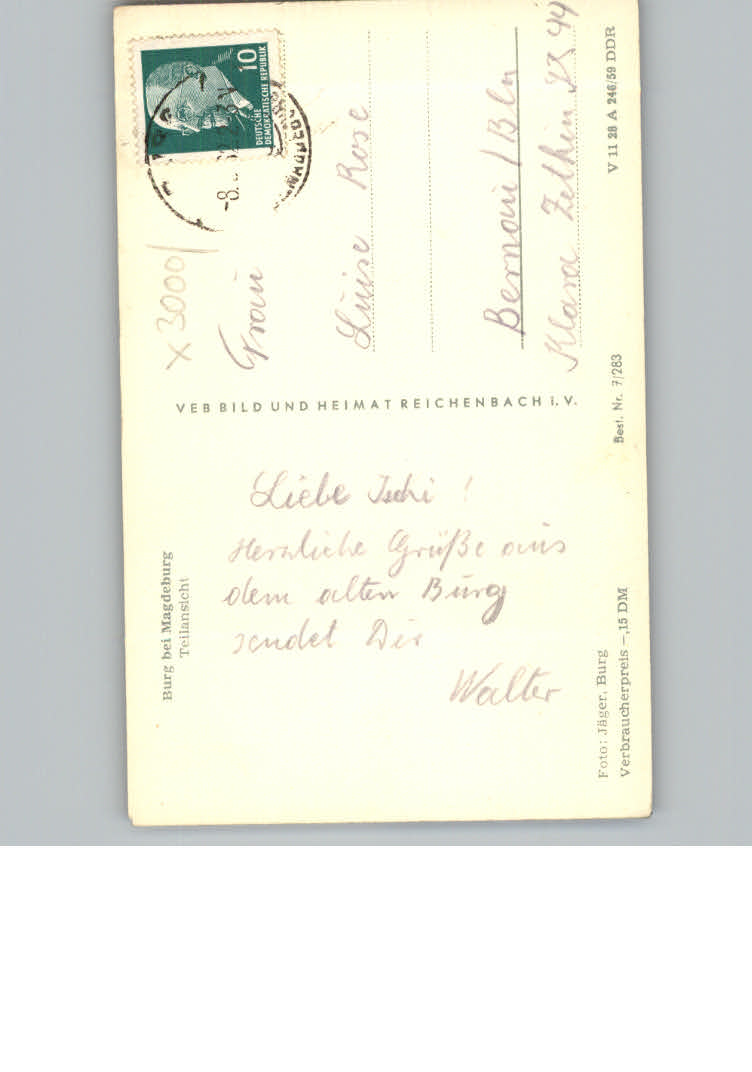 Burg bei Magdeburg
Teilansicht
Liebe
Herzliche Grüße aus
dem alten Burg
sendet Dir
Walter
Foto: Jäger, Burg
Verbraucherpreis –,15 DM
VEB BILD UND HEIMAT REICHENBACH i. V.
10
DEUTSCHE
DEMOKRATISCHE REPUBLIK
x 3000/
Frau
Luise Rose
Bernau / Bln
Klara Zetkin Str 44
Best. Nr. 7/283
V 11 28 A 246/59 DDR